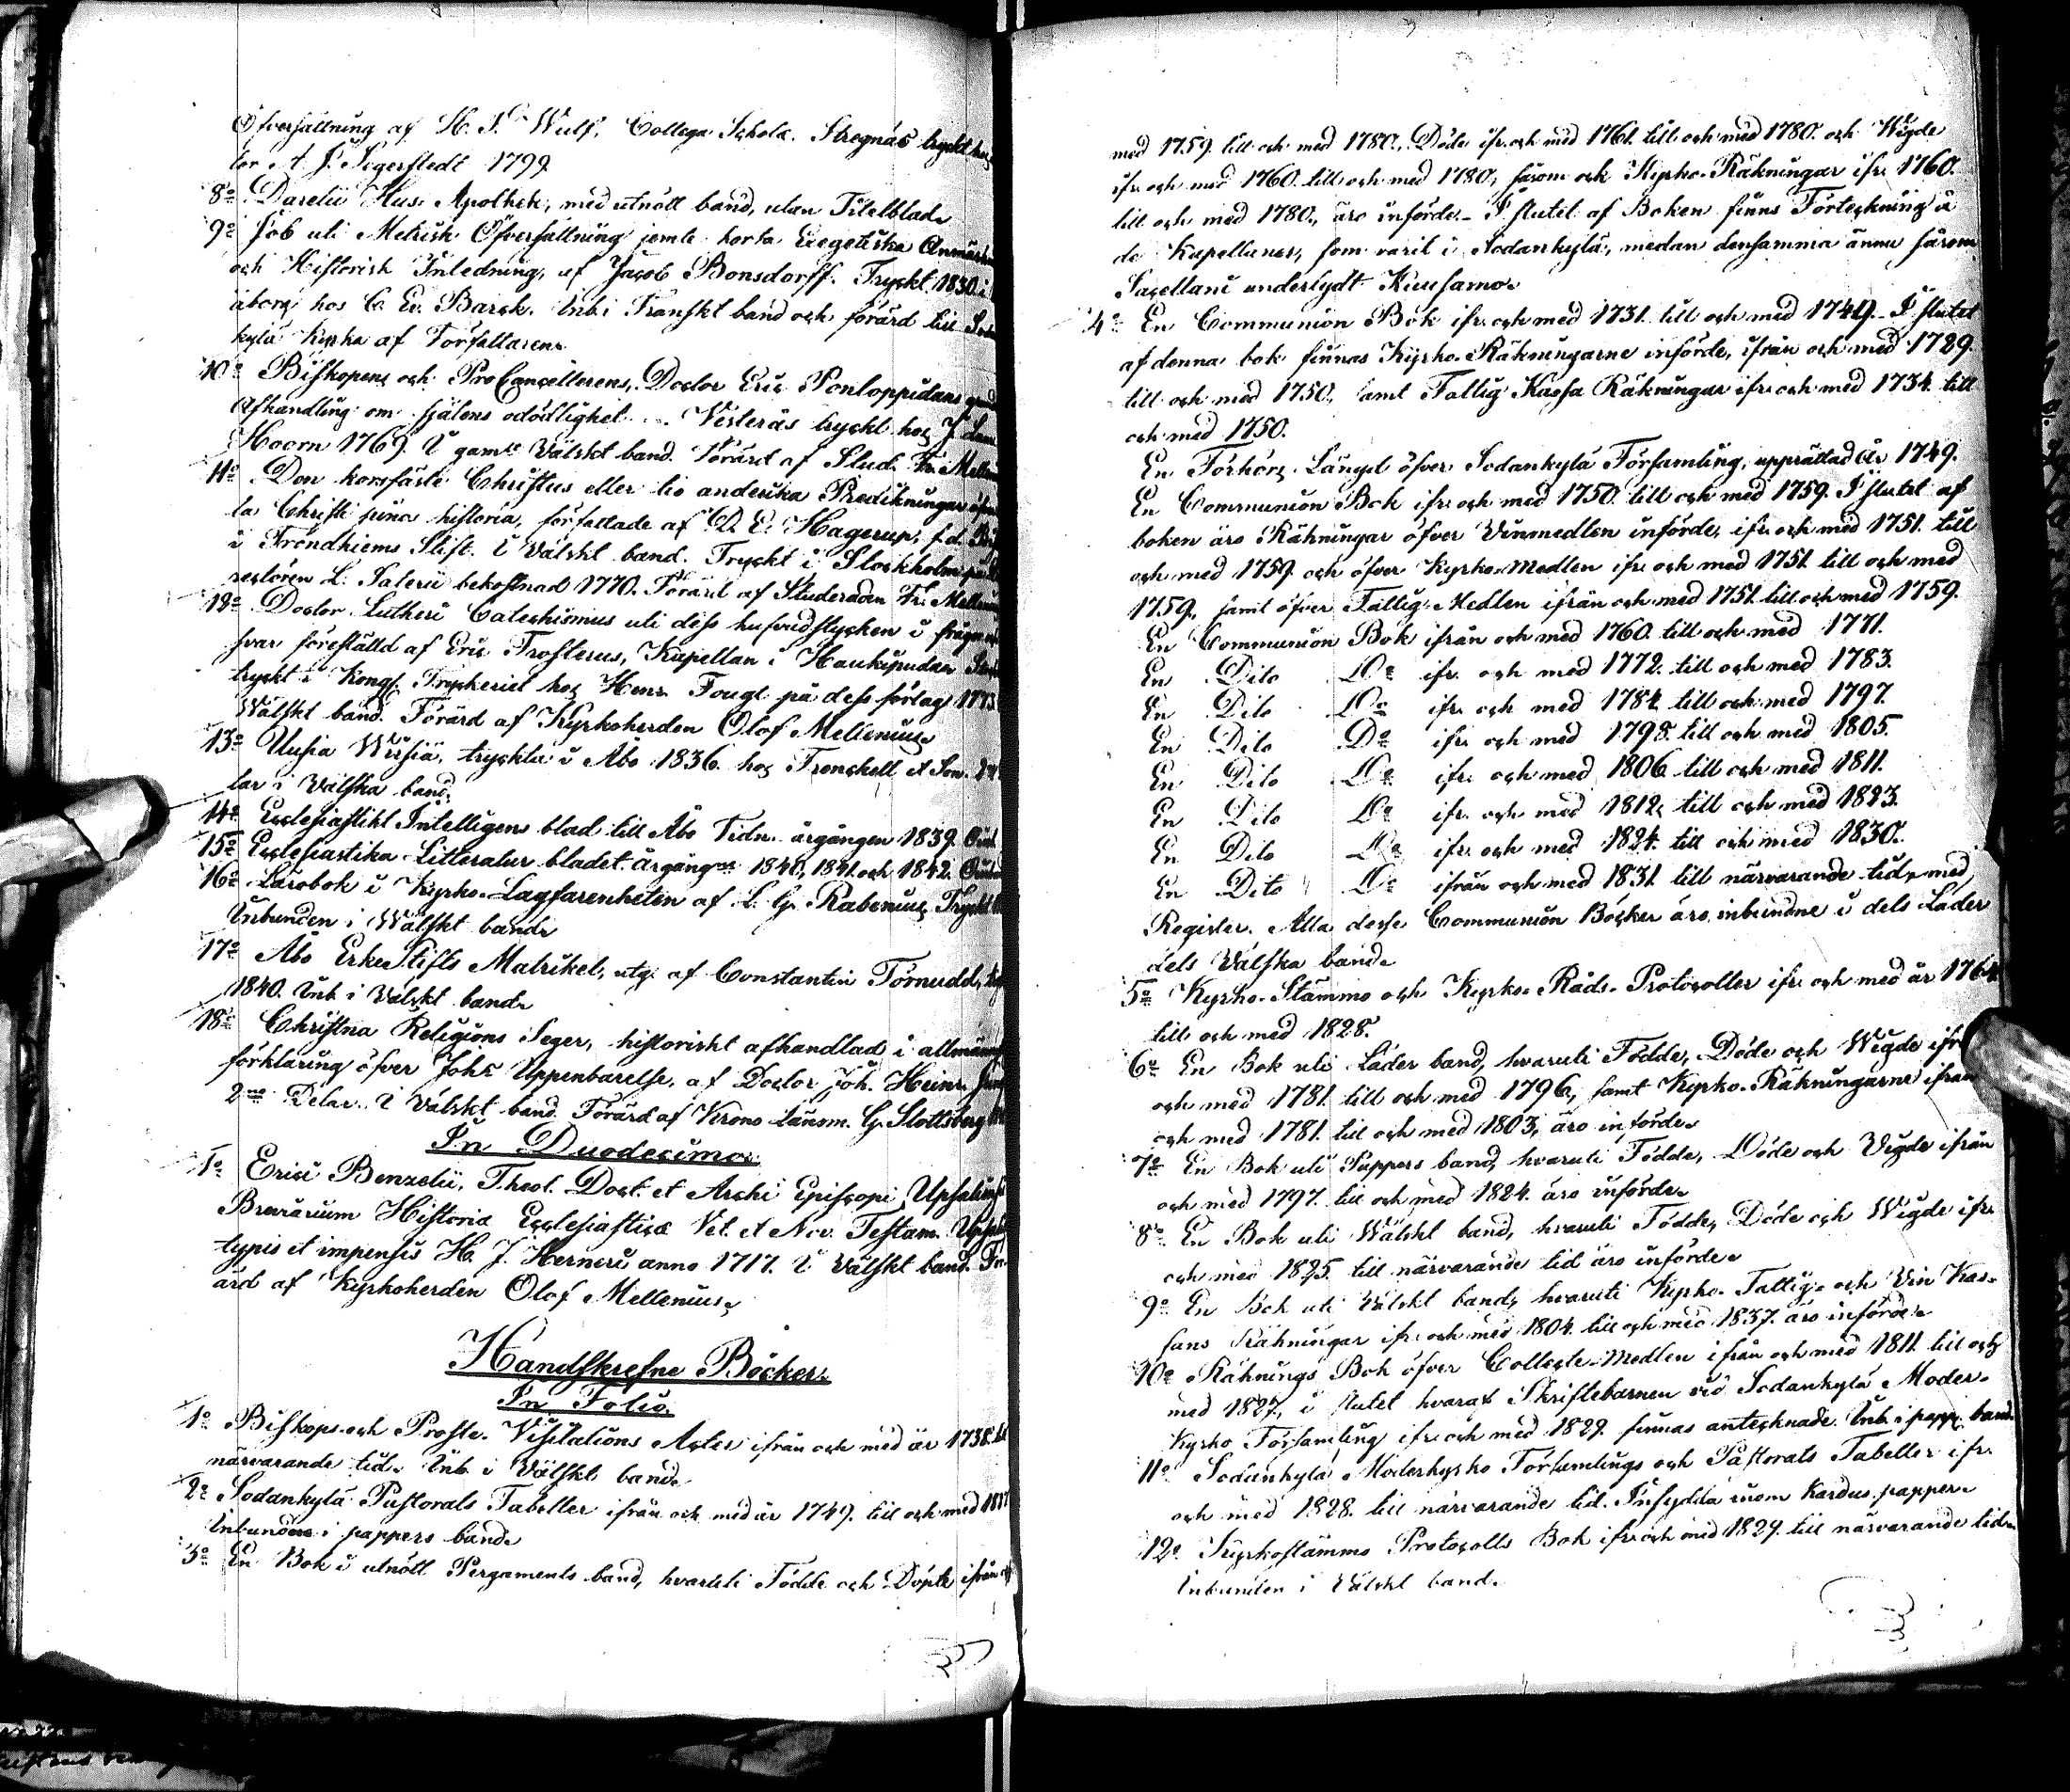 Öfversättning af H. J. Wulf, Collega Schol. Stregnäs tryckt hos
tor A. J. Segerstedt 1799.
8o Darelii Hus Apothek, med utnött band, utan Titelblad.
9o Job uti Metrisk Öfversättning jemte korta Exegetiska Anmärkn
och Historisk Inledning, af Jacob Bonsdorff. Tryckt 1830 i
åborg hos C. Ev. Barck. Inb. i Franskt band och förärd till Sodan
kylä Kyrka af Författaren.
10o Biskopens och ProCancellerens, Doctor Eric Pontoppidans
Afhandling om själens odödlighet . . Vesterås tryckt hos J.
Hoorn 1769. I gamt Välskt band. Förärd af Stud. Fr. Mellen
11o Den korsfäste Christus eller tio andelika Predikningar öfver
la Christi pinos historia, författade af D. E. Hagerup, f.d. Bis
i Trondhiems Stift. I Välskt band. Tryckt i Stockholm på
rectoren L. Salvii bekostnad 1770. Förärd af Studeranden Fr. Mellenius
12o Doctor Lutheri Catechismus uti dess hufvudstycken i frågor och
svar förestäld af Eric Frosterus, Kapellan i Haukipudas
tryckt i Kongl. Tryckeriet hos Henr. Fougt på dess förlag 1773
Wälskt band. Förärd af Kyrkoherden Olof Mellenius.
13o Uusia Wirsiä, tryckta i Åbo 1836. hos Frenckell et Son.
lar i Välska band.
14o Ecclesiastikt Intelligens blad till Åbo Tidn. årgången 1839.
15o Ecclesiastika Litteratur bladet årgångne 1840, 1841 och 1842.
16o Lärobok i Kyrko-Lagfarenheten af L. G. Rabenius. Tryckt
Inbunden i Wälskt band.
17o Åbo ErkeStifts Matrikel, utg. af Constantin Törnudd,
1840. Inb. i Välskt band.
18o Christna Religions Seger, historiskt afhandlad i allmänn
förklaring öfver Johs Uppenbarelse, af Doctor Joh. Heinr. Jung
2ne Delar. I Välskt band. Förärd af Krono Länsm. G. Slottsberg
In Duodecimo.
1o Erici Benzelii, Theol. Doct. et Archi Episcopi Upsaliensi
Breviarium Historiæ Ecclesiasticæ Vet. et Nov. Testam. Upsal
typis et impensis H. J. Herneri anno 1717. I Välskt band. För-
ärd af Kyrkoherden Olof Mellenius.
Handskrefne Böcker.
In Folio.
1o Biskops- och Proste-Visitations Acter ifrån och med år 1738 till
närvarande tid. Inb. i Välskt band.
2o Sodankylä Pastorats Tabeller ifrån och med år 1749. till och med
Inbunden i pappers band.
3o En Bok i utnött Pergaments band, hvaruti Födde och Döpte ifrån och
med 1759. till och med 1780., Döde ifr. och med 1761. till och med 1780. och Wigde
ifr. och med 1760. till och med 1780, såsom ock Kyrko-Räkningar ifr. 1760.
till och med 1780., äro införde. I slutet af Boken finns Förteckning å
de Kapellaner, som varit i Sodankylä, medan densamma ännu såsom
Sacellani underlydt Kuusamo.
4o En Communion Bok ifr. och med 1731. till och med 1749. I slutet
af denna bok finnas Kyrko-Räkningarne införde, ifrån och med 1729.
till och med 1750., samt Fattig Kassa Räkningar ifr. och med 1734. till
och med 1750.
En Förhörs-Längd öfver Sodankylä Församling, upprättad år 1749.
En Communion Bok ifr. och med 1750. till och med 1759. I slutet af
boken äro Räkningar öfver Vinmedlen införde, ifr. och med 1751. till
och med 1759. och öfver Kyrko-Medlen ifr. och med 1751. till och med
1759., samt öfver Fattig-Medlen ifrån och med 1751. till och med 1759.
En Communion Bok ifrån och med 1760. till och med 1771.
En Dito Do ifr. och med 1772. till och med 1783.
En Dito Do ifr. och med 1784. till och med 1797.
En Dito Do ifr. och med 1798. till och med 1805.
En Dito Do ifr. och med 1806. till och med 1811.
En Dito Do ifr. och med 1812. till och med 1823.
En Dito Do ifr. och med 1824. till och med 1830.
En Dito Do ifrån och med 1831. till närvarande tid, med
Register. Alla desse Communion Böcker äro inbundne i dels Läder
dels Välska band.
5o Kyrko-Stämmo och Kyrko-Råds-Protocoller ifr. och med år 1764.
till och med 1828.
6o En Bok uti Läder band, hvaruti Födde, Döde och Wigde ifr
och med 1781. till och med 1796., samt Kyrko-Räkningarne ifrån
och med 1781. till och med 1803, äro införde.
7o En Bok uti Pappers band, hvaruti Födde, Döde och Vigde ifrån
och med 1797. till och med 1824. äro införde.
8o En Bok uti Wälskt band, hvaruti Födde, Döde och Wigde ifr.
och med 1825. till närvarande tid äro införde.
9o En Bok uti Välskt band, hvaruti Kyrko-Fattig- och Vin Kas-
sans Räkningar ifr. och med 1804. till och med 1837. äro införde.
10o Räknings Bok öfver Collecte-Medlen ifrån och med 1811. till och
med 1827., i slutet hvaraf Skriftebarnen vid Sodankylä Moder-
Kyrko Församling ifr. och med 1829. finnas antecknade. Inb. i papp. band.
11o Sodankylä Moderkyrko Församlings och Pastorats Tabeller ifr.
och med 1828. till närvarande tid. Insydda inom Kardus papper.
12o Kyrkostämmo Protocolls Bok ifr. och med 1829. till närvarande tid.
Inbunden i Välskt band.